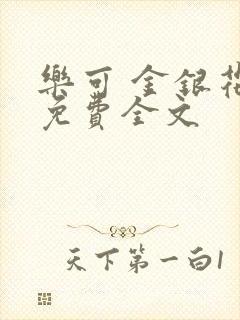 樂可 金銀花
免費全文
天下第一白1